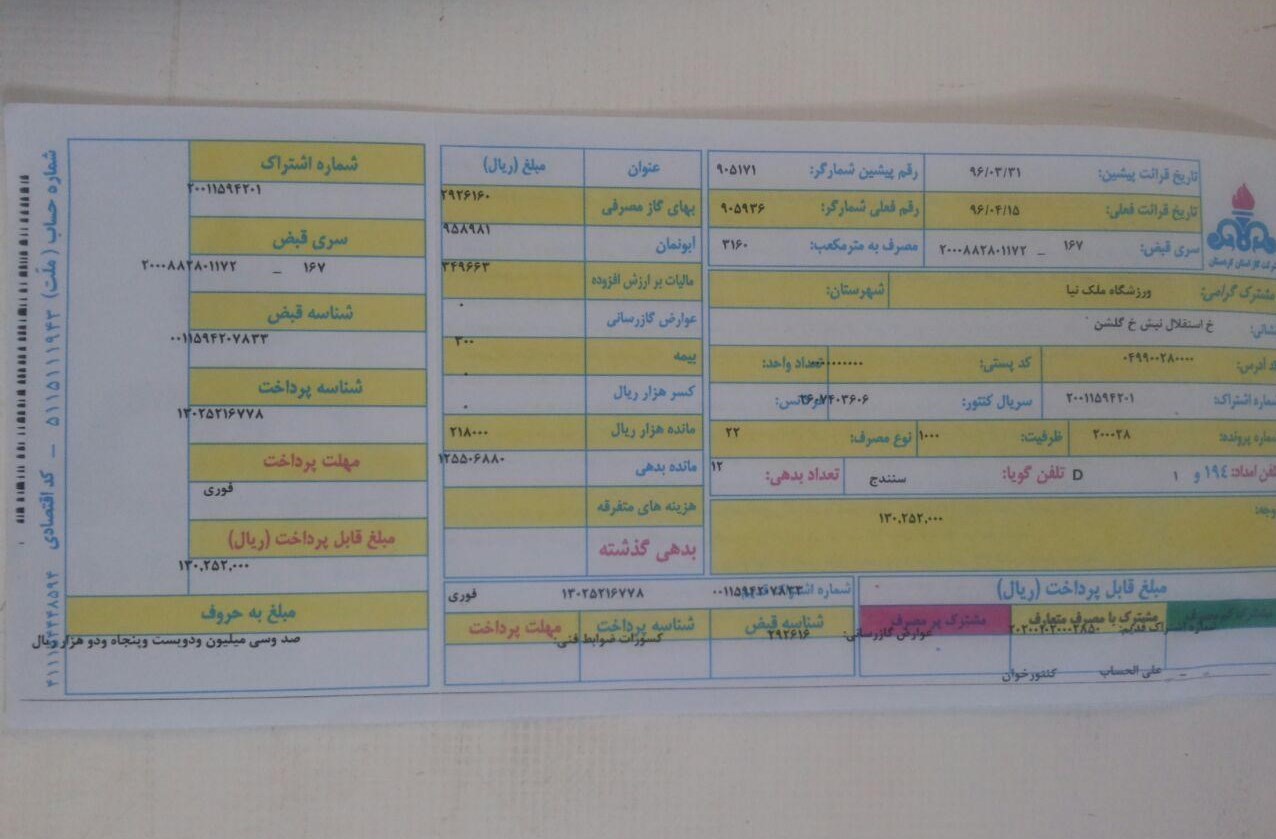 تاریخ قرائت پیشین: ۹۶/۰۳/۳۱ رقم پیشین شمارگر: ۹۰۵۱۷۱
تاریخ قرائت فعلی: ۹۶/۰۴/۱۵ رقم فعلی شمارگر: ۹۰۵۹۳۶
سری قبض: ۱۶۷ _ ۲۰۰۰۸۸۲۸۰۱۱۷۲ مصرف به مترمکعب: ۳۱۶۰
شرکت گاز استان کردستان
مشترک گرامی: ورزشگاه ملک نیا شهرستان:
نشانی: خ استقلال نبش خ گلشن
کد آدرس: ۰۴۹۹۰۰۲۸۰۰۰۰ کد پستی: تعداد واحد:
شماره اشتراک: ۲۰۰۱۱۵۹۴۲۰۱ سریال کنتور:
شماره پرونده: ۲۰۰۰۲۸ ظرفیت: ۱۰۰۰ نوع مصرف: ۲۲
تلفن امداد: ۱۹۴ و ۱ D تلفن گویا: سنندج تعداد بدهی: ۱۲
توجه: ۱۳۰,۲۵۲,۰۰۰
مبلغ قابل پرداخت (ریال)
مشترک با مصرف متعارف مشترک پر مصرف
عوارض گازرسانی: ۲۹۲۶۱۶ کسورات ضوابط فنی:
علی الحساب کنتورخوان
عنوان مبلغ (ریال)
بهای گاز مصرفی ۲۹۲۶۱۶۰
آبونمان ۹۵۸۹۸۱
مالیات بر ارزش افزوده ۳۴۹۶۶۳
عوارض گازرسانی ۰
بیمه ۳۰۰
کسر هزار ریال ۰
مانده هزار ریال ۰
مانده بدهی ۲۱۸۰۰۰
هزینه های متفرقه ۱۲۵۵۰۶۸۸۰
بدهی گذشته
۰۰۱۱۵۹۴۲۰۷۸۳۳ ۱۳۰۲۵۲۱۶۷۷۸ فوری
شناسه قبض شناسه پرداخت مهلت پرداخت
شماره اشتراک
۲۰۰۱۱۵۹۴۲۰۱
سری قبض
۱۶۷ _ ۲۰۰۰۸۸۲۸۰۱۱۷۲
شناسه قبض
۰۰۱۱۵۹۴۲۰۷۸۳۳
شناسه پرداخت
۱۳۰۲۵۲۱۶۷۷۸
مهلت پرداخت
فوری
مبلغ قابل پرداخت (ریال)
۱۳۰,۲۵۲,۰۰۰
مبلغ به حروف
صد وسی میلیون ودویست وپنجاه ودو هزار ریال
شماره حساب (ملت) ۵۱۱۵۱۱۱۹۴۳ – کد اقتصادی